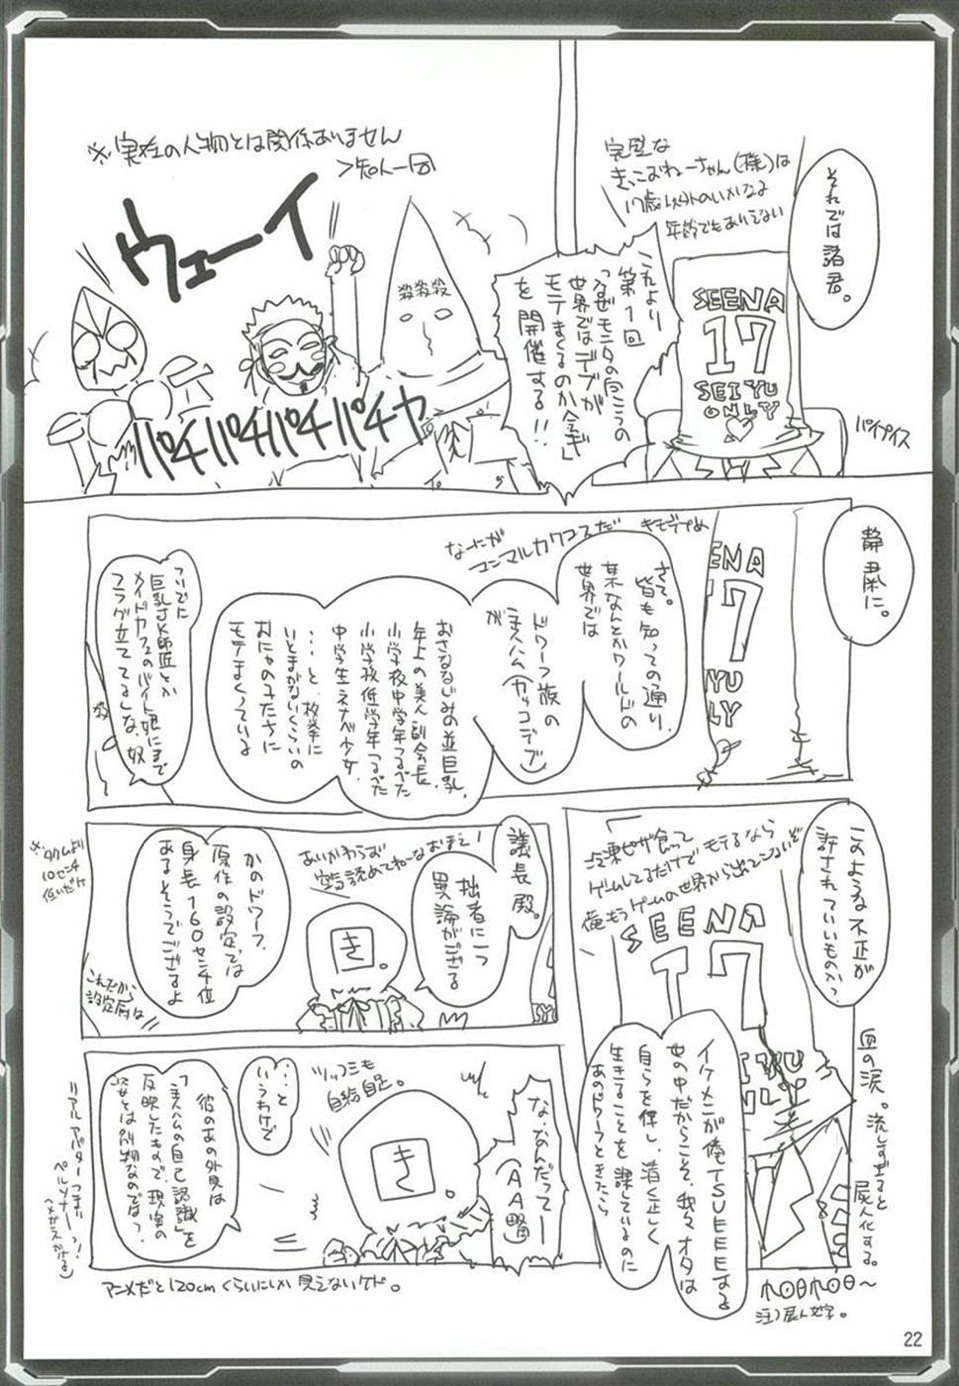 それでは諸君。
完璧な
きっこおねーちゃん(様)は
17歳以外のいかなる
年齢でもありえない
SEENA
17
SEIYU
ONLY
パイプイス
これより
第1回
「なぜモニタの向こうの
世界ではデブが
モテまくるのか会議」
を開催する!!
※実在の人物とは関係ありません
>知人一団
ウェーイ
殺殺殺
パチパチパチパチ
静粛に。
SEENA
17
さて。
皆も知っての通り、
某なんとかワールドの
世界では
ドワーフ族の
主人ハム(カッコデブ)
が
おさななじみの並巨乳、
年上の美人副会長、
小学校中学年つるぺた
小学校低学年つるぺた
中学生ネナベ少女、
…と、枚挙に
いとまがないくらいの
おにゃの子たちに
モテまくっている
ついでに
巨乳JK師匠とか
メイドカフェのバイト娘にまで
フラグ立ててるしな、奴
このような不正が
許されていいものか?
冷凍ピザ食って
ゲームしてるだけでモテるなら
俺もうゲームの世界から出てこないぞ
SEENA
17
イケメンが俺TSUEEEEする
世の中だからこそ、我々オタは
自らを律し、清く正しく
生きることを課しているのに
あのドワーフときたら
血の涙。流しすぎると
屍人化する。
注)屍人文字。
議長殿。
拙者に一つ
異論がござる
あいかわらず
空気読めてねーなおまえ!
き。
かのドワーフ、
原作の設定では
身長160センチ位
あるそうでござるよ
※タクムより
10センチ
低いだけ
これだから
設定厨は
な、なんだってー
(AA略)
ツッコミも
自給自足。
き。
…と
いうわけで
彼のあの外見は
「主人ハムの自己認識」を
反映したもので、現実の
姿とは別物なのでは?
リアルアバターつまり
ペルソナーっ!
(メガネかける)
アニメだと120cmくらいにしか見えないケド。
22